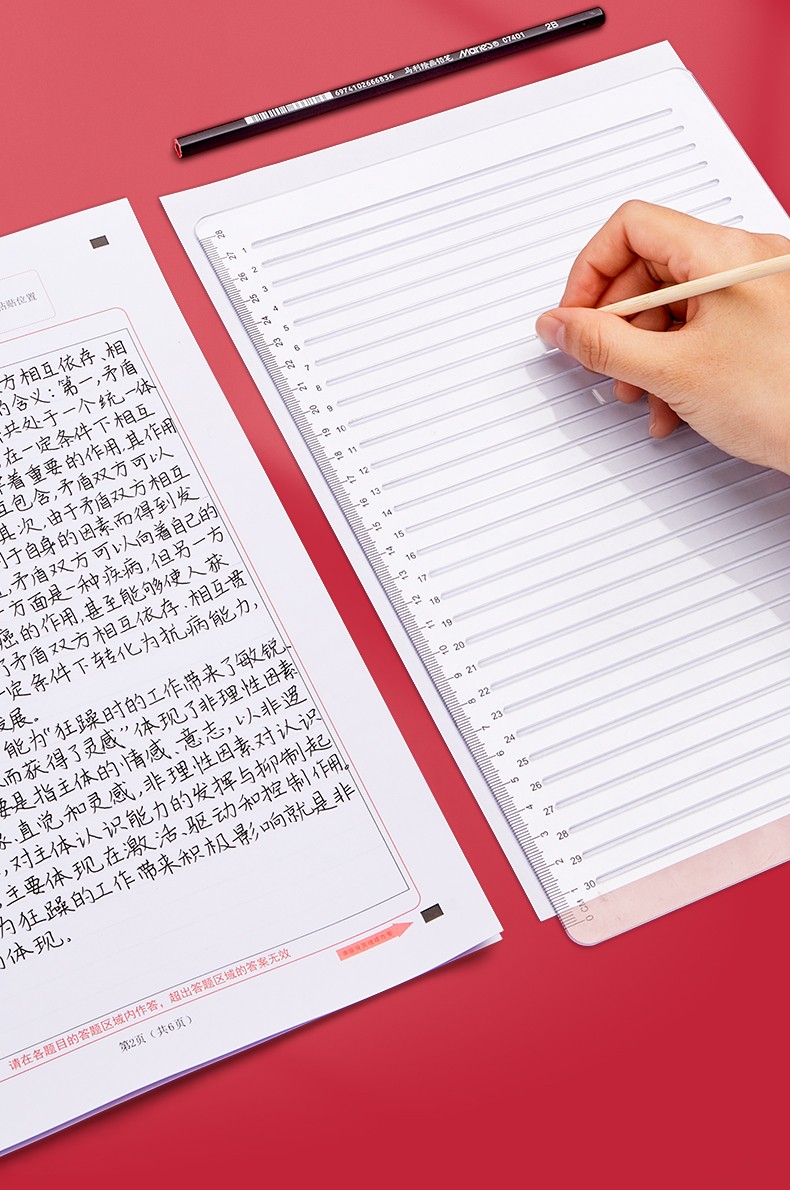 6974102666836 马利绘画铅笔 Marie's® C7401 2B
粘贴位置
方相互依存、相
的含义:第一,矛盾
共处于一个统一体
在一定条件下相互
着重要的作用,其作用
互包含,矛盾双方可以
其次,由于矛盾双方相互
于自身的因素而得到发
矛盾双方可以向着自己的
方面是一种疾病,但另一方
癌的作用,甚至能够使人获
了矛盾双方相互依存、相互贯
一定条件下转化为抗病能力,
发展。
能为“狂躁时的工作带来了敏锐、
从而获得了灵感”体现了非理性因素
要是指主体的情感、意志,以非逻
象、直觉和灵感,非理性因素对认识
,对主体认识能力的发挥与抑制起
,主要体现在激活、驱动和控制作用。
为狂躁的工作带来积极影响就是非
的体现。
请在各题目的答题区域内作答,超出答题区域的答案无效
第2页(共6页)
28
27
26
25
24
23
22
21
20
19
18
17
16
15
14
13
12
11
10
9
8
7
6
5
4
3
2
1
0 CM
1
2
3
4
5
6
7
8
9
10
11
12
13
14
15
16
17
18
19
20
21
22
23
24
25
26
27
28
29
30